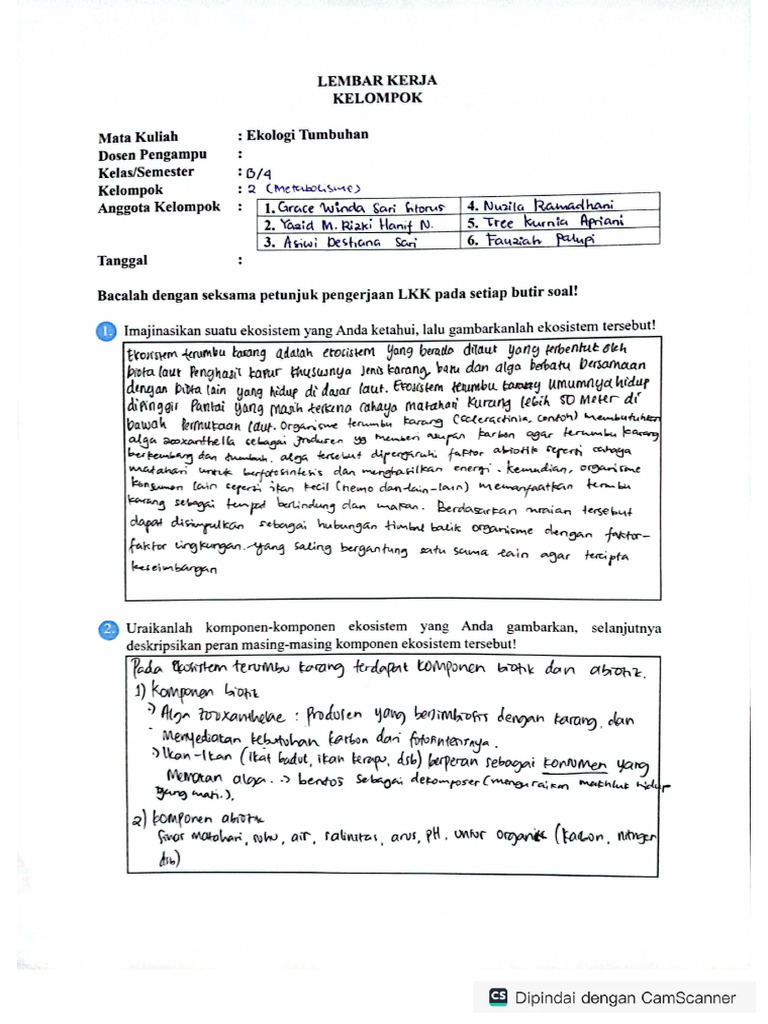 LEMBAR KERJA
KELOMPOK
Mata Kuliah : Ekologi Tumbuhan
Dosen Pengampu :
Kelas/Semester : B/4
Kelompok : 2 (Metabolisme)
Anggota Kelompok : 1. Grace Winda Sari Sitorus 4. Nuzila Ramadhani
2. Yazid M. Rizki Hanif N. 5. Tree Kurnia Apriani
3. Asiwi Destiana Sari 6. Fauziah Palupi
Tanggal :
Bacalah dengan seksama petunjuk pengerjaan LKK pada setiap butir soal!
1. Imajinasikan suatu ekosistem yang Anda ketahui, lalu gambarkanlah ekosistem tersebut!
Ekosistem terumbu karang adalah ekosistem yang berada dilaut yang terbentuk oleh
biota laut Penghasil kapur khususnya Jenis karang, batu dan alga berbatu bersamaan
dengan biota lain yang hidup di dasar laut. Ekosistem terumbu karang umumnya hidup
dipinggir Pantai yang masih terkena cahaya matahari kurang lebih 50 Meter di
bawah Permukaan laut. Organisme terumbu karang (Scleractinia, contoh) membutuhkan
alga zooxanthella sebagai produsen yg memberi asupan karbon agar terumbu karang
berkembang dan tumbuh. alga tersebut dipengaruhi faktor abiotik seperti cahaya
matahari untuk berfotosintesis dan menghasilkan energi. Kemudian, organisme
konsumen lain seperti ikan kecil (nemo dan-lain-lain) memanfaatkan terumbu
karang sebagai tempat berlindung dan makan. Berdasarkan uraian tersebut
dapat disimpulkan sebagai hubungan timbal balik organisme dengan faktor-
faktor lingkungan. yang saling bergantung satu sama lain agar tercipta
keseimbangan
2. Uraikanlah komponen-komponen ekosistem yang Anda gambarkan, selanjutnya
deskripsikan peran masing-masing komponen ekosistem tersebut!
Pada Ekosistem terumbu karang terdapat komponen biotik dan abiotik.
1) Komponen biotik
-> Alga zooxanthelae : Produsen yang bersimbiosis dengan karang, dan
Menyediakan kebutuhan karbon dari fotosintesisnya.
-> Ikan-Ikan (ikat badut, ikan kerapu, dsb) berperan sebagai konsumen yang
Memakan alga. -> bentos sebagai dekomposer (menguraikan makhluk hidup
yang mati.).
2) komponen abiotik
Sinar matahari, suhu, air, salinitas, arus, PH, unsur organik (karbon, nitrogen
dsb)
CS Dipindai dengan CamScanner